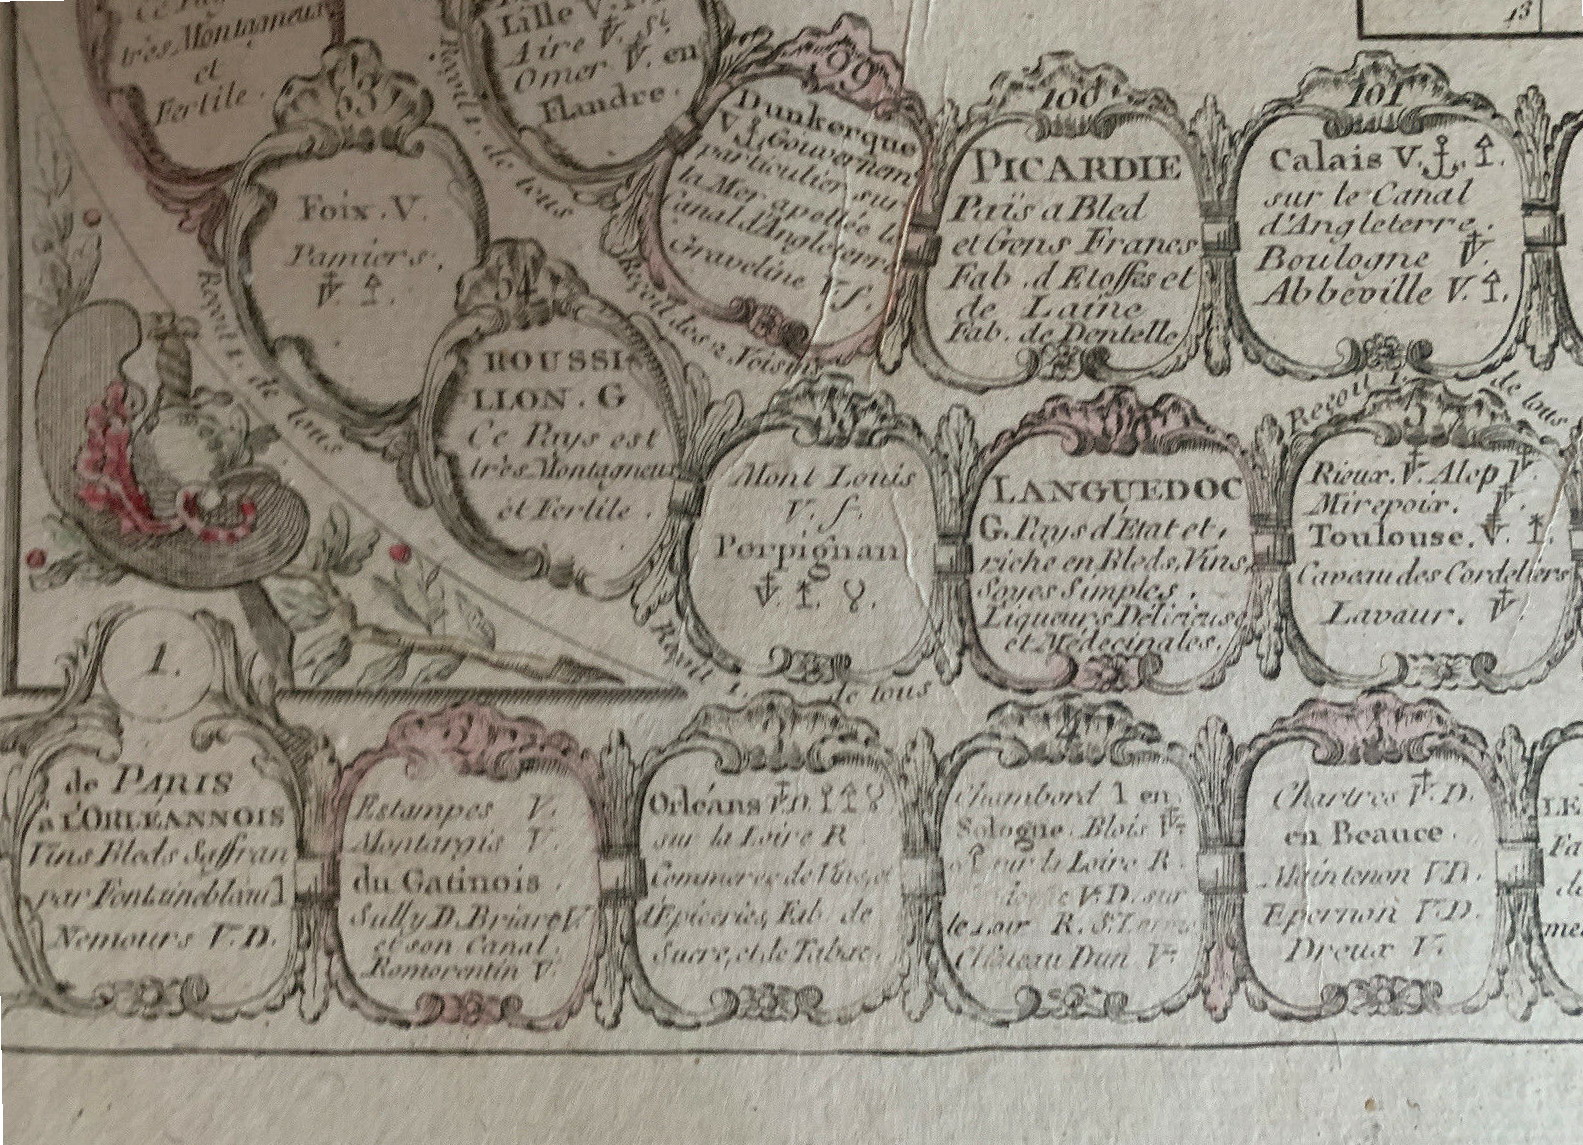 très Montagneus
et
Fertile.
Lille V.
Aire V. St.
Omer. V. en
Flandre.
Reçoit 1. de tous
99
Dunkerque
V. Gouvernem
particulier sur
la Mer apellée le
Canal d'Angleterre
Graveline V. f.
Reçoit des 2 Voisins
100
PICARDIE
Païs a Bled
et Gens Francs
Fab. d'Etoffes et
de Laine
Fab. de Dentelle
101
Calais V.
sur le Canal
d'Angleterre.
Boulogne V.
Abbeville V.
13
53
Foix. V.
Pamiers.
V.
Reçoit 1. de tous
54
ROUSSI
LLON. G
Ce Pays est
très Montagneus
et Fertile.
Mont Louis
V. f.
Perpignan
V.
Reçoit 1. de tous
LANGUEDOC
G. Pays d'Etat et,
riche en Bleds, Vins,
Soyes Simples,
Liqueurs Délicieuse
et Médecinales.
Reçoit 1. de tous
57
Rieux. V. Alep V.
Mirepoix. V.
Toulouse. V.
Caveau des Cordeliers
Lavaur. V.
1.
de PARIS
à l'ORLEANNOIS
Vins Bleds Saffran
par Fontainebleau
Nemours V. D.
2
Estampes V.
Montargis V.
du Gatinois.
Sully D. Briare V.
et son Canal.
Romorentin V.
Orléans V. D.
sur la Loire R
Commerce de Vins, et
d'Epiceries, Fab. de
Sucre, et de Tabac.
4
Chambord 1 en
Sologne. Blois V.
sur la Loire R.
V. D. sur
le Loir R. St.
Château Dun V.
Chartres V. D.
en Beauce.
Maintenon V. D.
Epernon V. D.
Dreux V.
LE
Fa
de
me